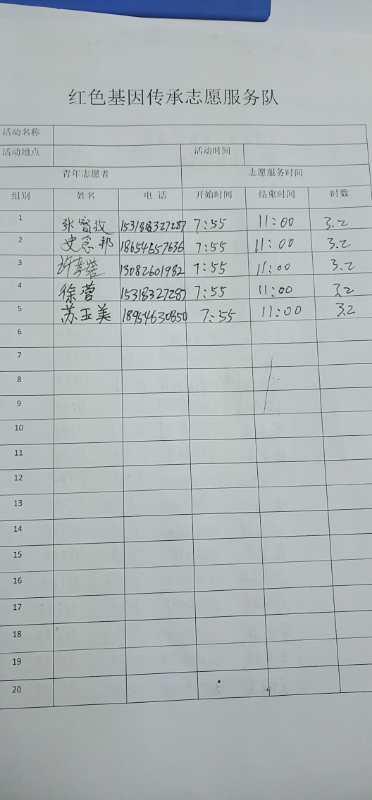 红色基因传承志愿服务队
活动名称
活动地点 活动时间
青年志愿者 志愿服务时间
组别 姓名 电话 开始时间 结束时间 时数
1 7:55 11:00 3.2
2 18654657636 7:55 11:00 3.2
3 7:55 11:00 3.2
4 徐蓉 15318327287 7:55 11:00 3.2
5 苏亚美 18954630850 7:55 11:00 3.2
6
7
8
9
10
11
12
13
14
15
16
17
18
19
20